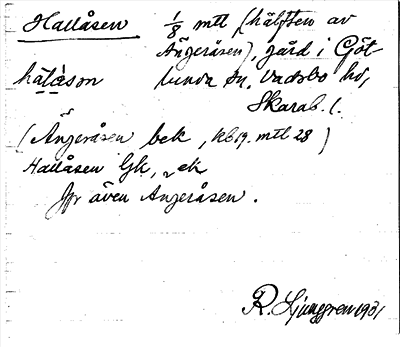 Hallåsen 1/8 mtl (hälften av
Ängeråsen), gård i Göt
hálàson lunda sn, Vadsbo hd,
Skarab. l.
(Ängeråsen bek, kb19. mtl 28)
Hallåsen Gk, ek
Jfr även Angeråsen.
R. Ljunggren 1931